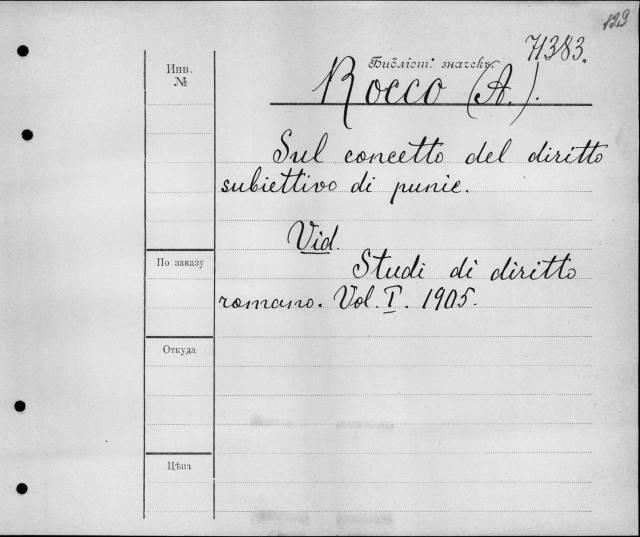 129
71383.
Библіот. значекъ.
Инв.
№
Rocco (A.).
Sul concetto del diritto
subiettivo di punie.
Vid.
Studi di diritto
По заказу
romano. Vol. I. 1905.
Откуда
Цѣна